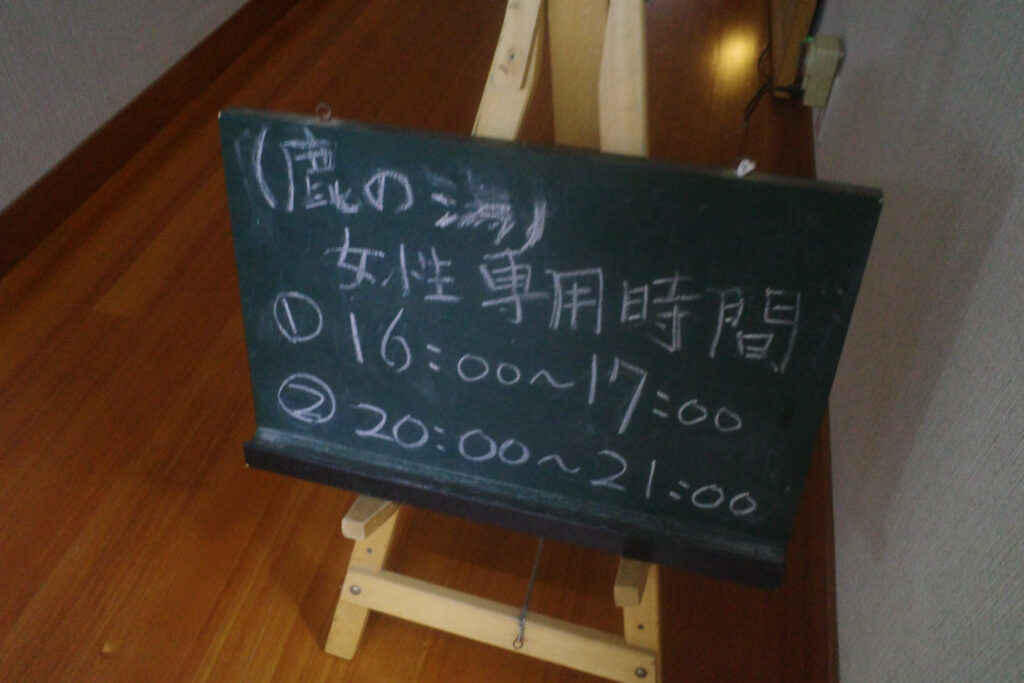 (鹿の湯)
女性専用時間
① 16:00~17:00
② 20:00~21:00